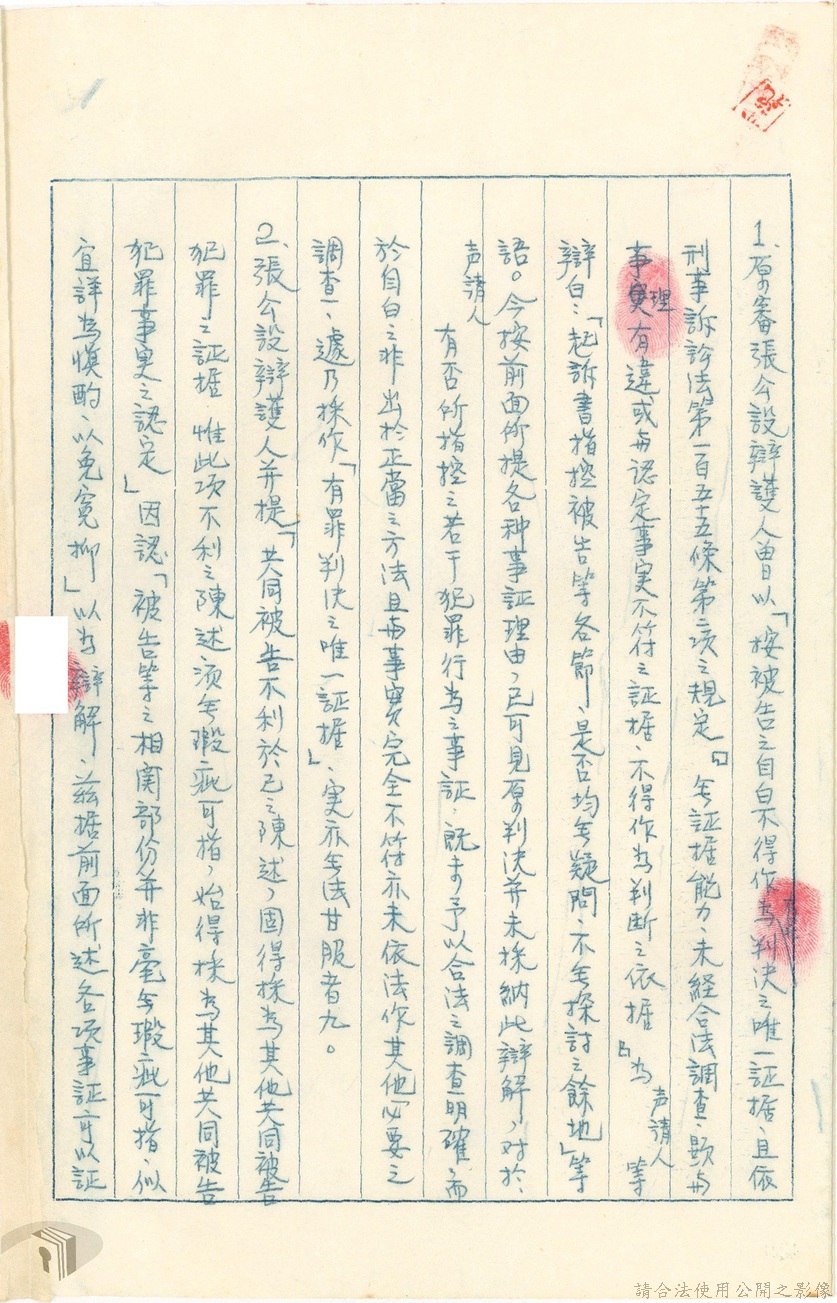 1、原審張公設辯護人曾以「按被告之自白不得作為有罪判決之唯一証据、且依
刑事訴訟法第一百五十五條第二項之規定『無証据能力、未経合法調查、顯與
事理有違或與認定事実不符之証据、不得作為判斷之依据』為声請人等
辯白：「起訴書指控被告等各節、是否均無疑問、不無探討之餘地」等
語。今按前面所提各种事証理由，已可見原判決并未採納此辯解，对於
声請人有否所指控之若干犯罪行為之事証，既未予以合法之調查明確、而
於自白之非出於正當之方法且與事實完全不符亦未依法作其他必要之
調查、遽乃採作「有罪判決之唯一証据」、実亦無法甘服者九。
2、張公設辯護人并提「共同被告不利於己之陳述，固得採為其他共同被告
犯罪之証据 惟此項不利之陳述須無瑕疵可指，始得採為其他共同被告
犯罪事実之認定」因認「被告等之相関部份并非毫無瑕疵可指、似
宜詳為慎酌、以免冤抑」以為辯解、茲据前面所述各項事証可以証
請合法使用公開之影像